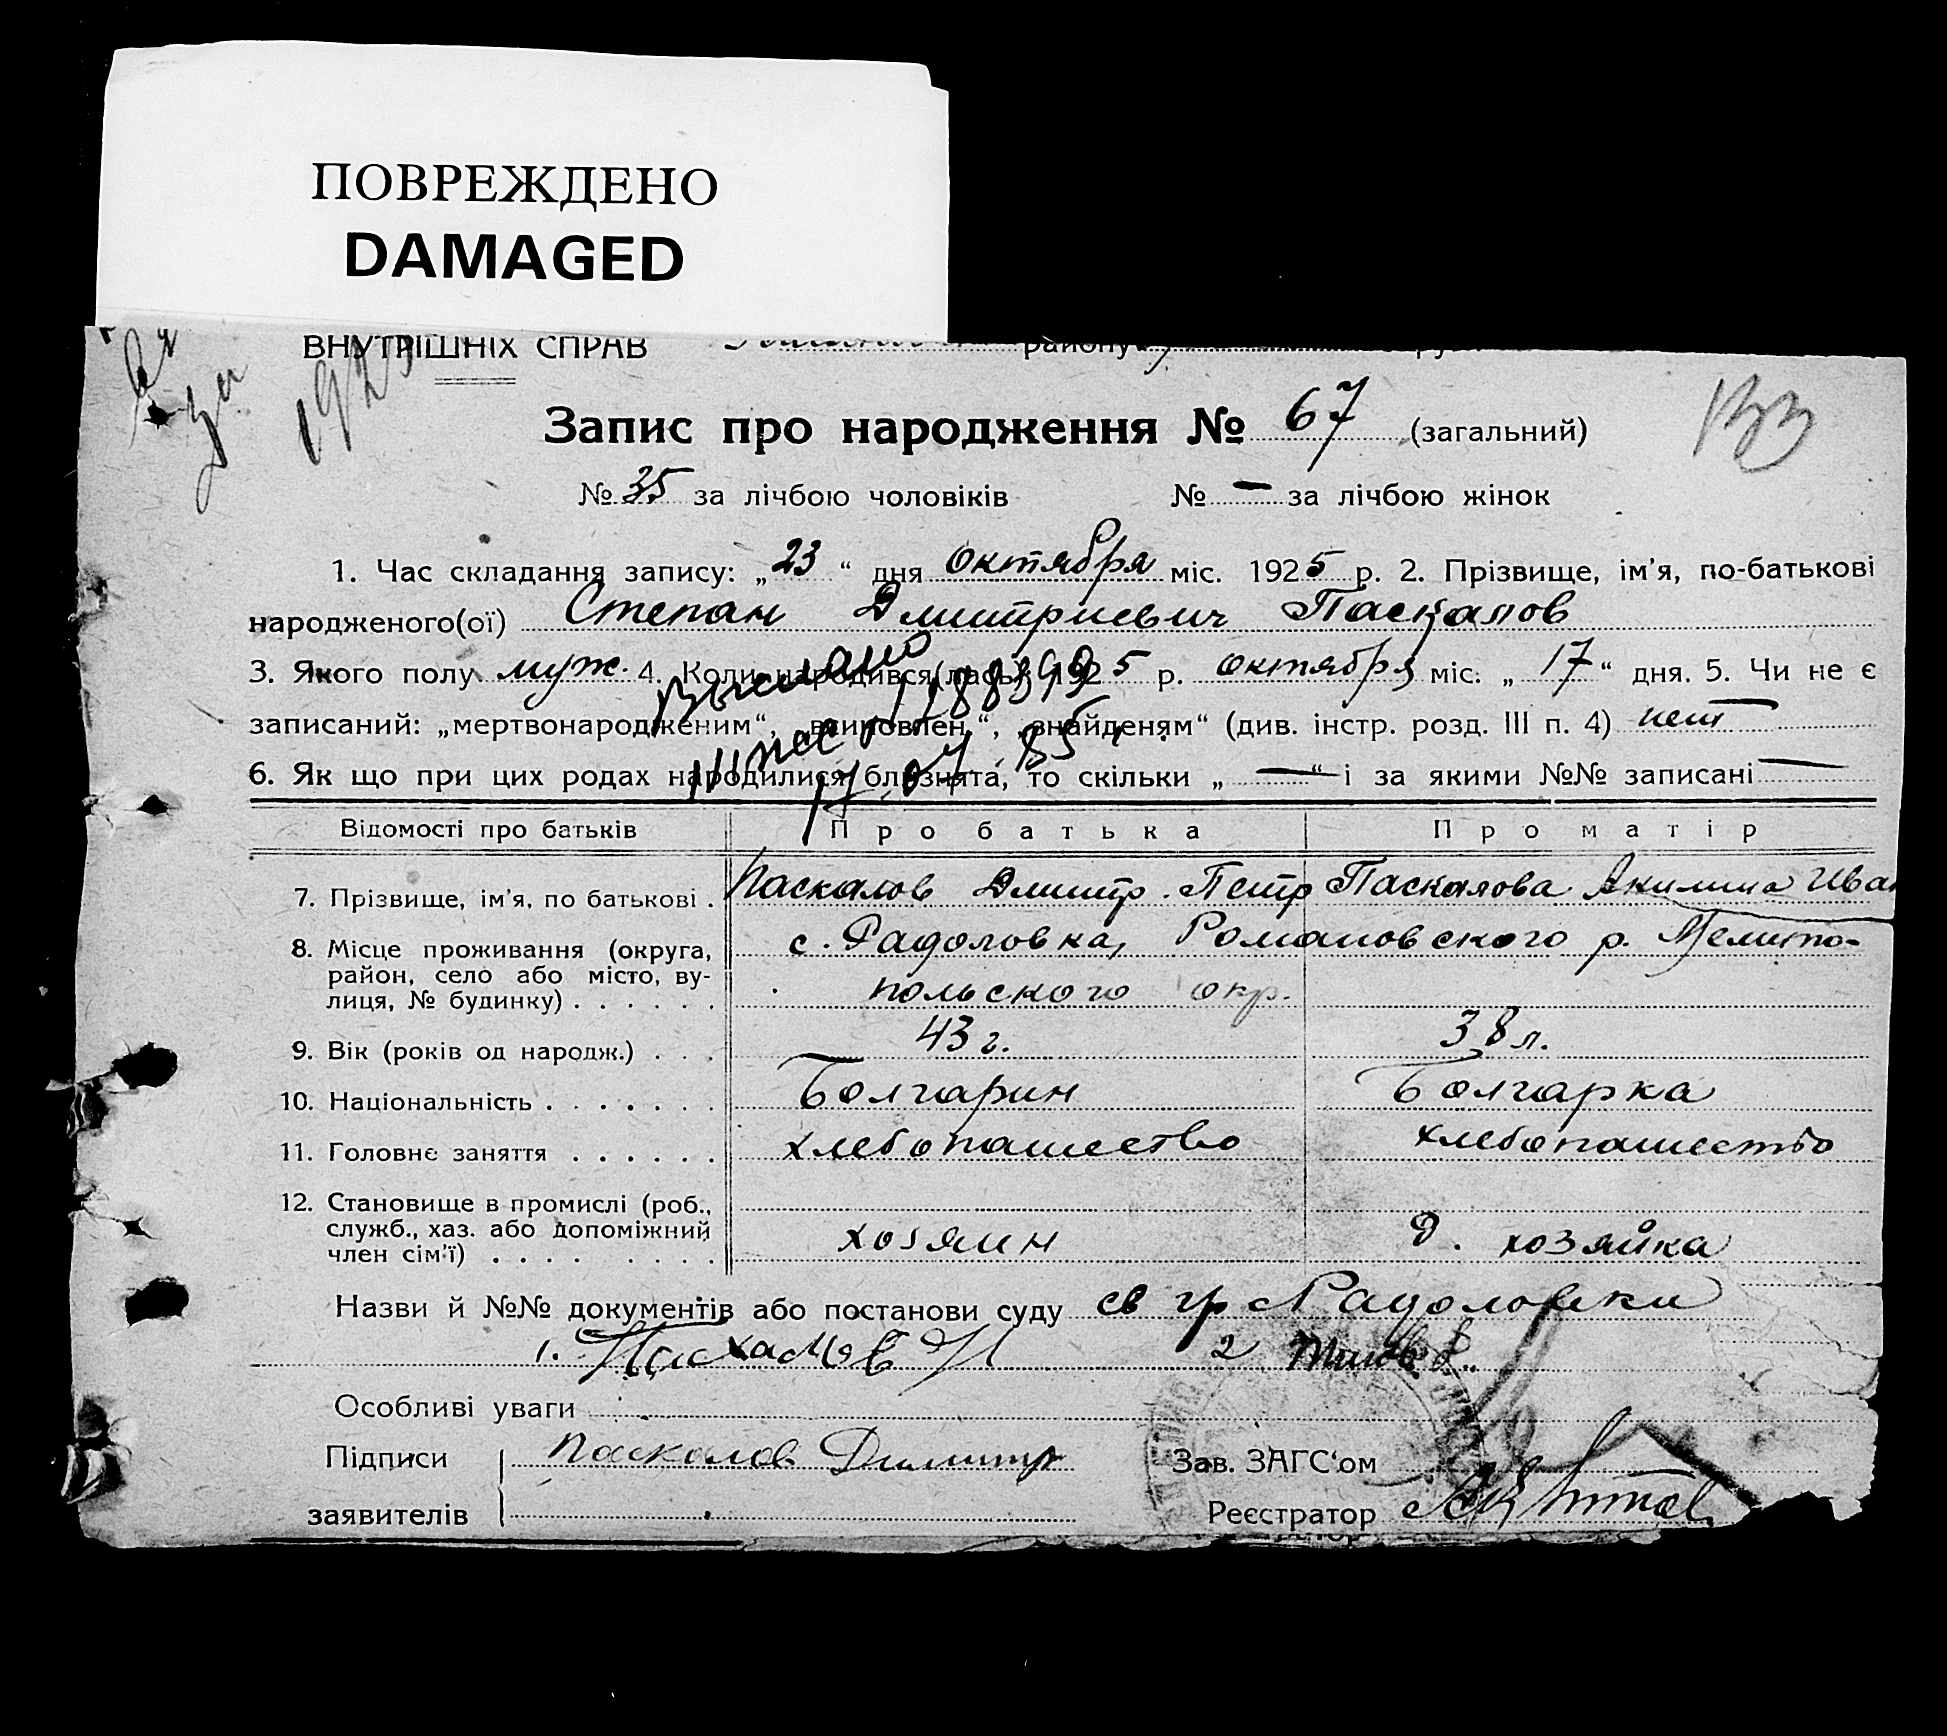 ПОВРЕЖДЕНО
DAMAGED
ВНУТРІШНІХ СПРАВ району
за 1925
Запис про народження № 67 (загальний) 133
№ 35 за лічбою чоловіків № — за лічбою жінок
1. Час складання запису: „23“ дня октября міс. 1925 р. 2. Прізвище, ім'я, по-батькові
народженого(ої) Степан Дмитриевич Паскалов
3. Якого полу муж. 4. Коли народився(лась) 1925 р. октября міс. „17“ дня. 5. Чи не є
записаний: „мертвонародженим“, „знайденям“ (див. інстр. розд. III п. 4) нет
6. Як що при цих родах народилися близнята, то скільки „—“ і за якими №№ записані —
Выслано
Відомості про батьків Про батька Про матір
7. Прізвище, ім'я, по батькові . Паскалов Дмитр. Петр Паскалова Акилина Иван
8. Місце проживання (округа, с. Радоловка, Романовского р. Мелито-
район, село або місто, ву-
лиця, № будинку) . . . . . . польского окр.
9. Вік (років од народж.) . . . 43 г. 38 л.
10. Національність . . . . . . . Болгарин Болгарка
11. Головнє заняття . . . . . . хлебопашество хлебопашество
12. Становище в промислі (роб.,
служб., хаз. або допоміжний
член сім'ї) . . . . . . . . хозяин д. хозяйка
Назви й №№ документів або постанови суду св гр с Радоловки
1. 2
Особливі уваги
Підписи Паскалов Димитр Зав. ЗАГС'ом
заявителів Реєстратор